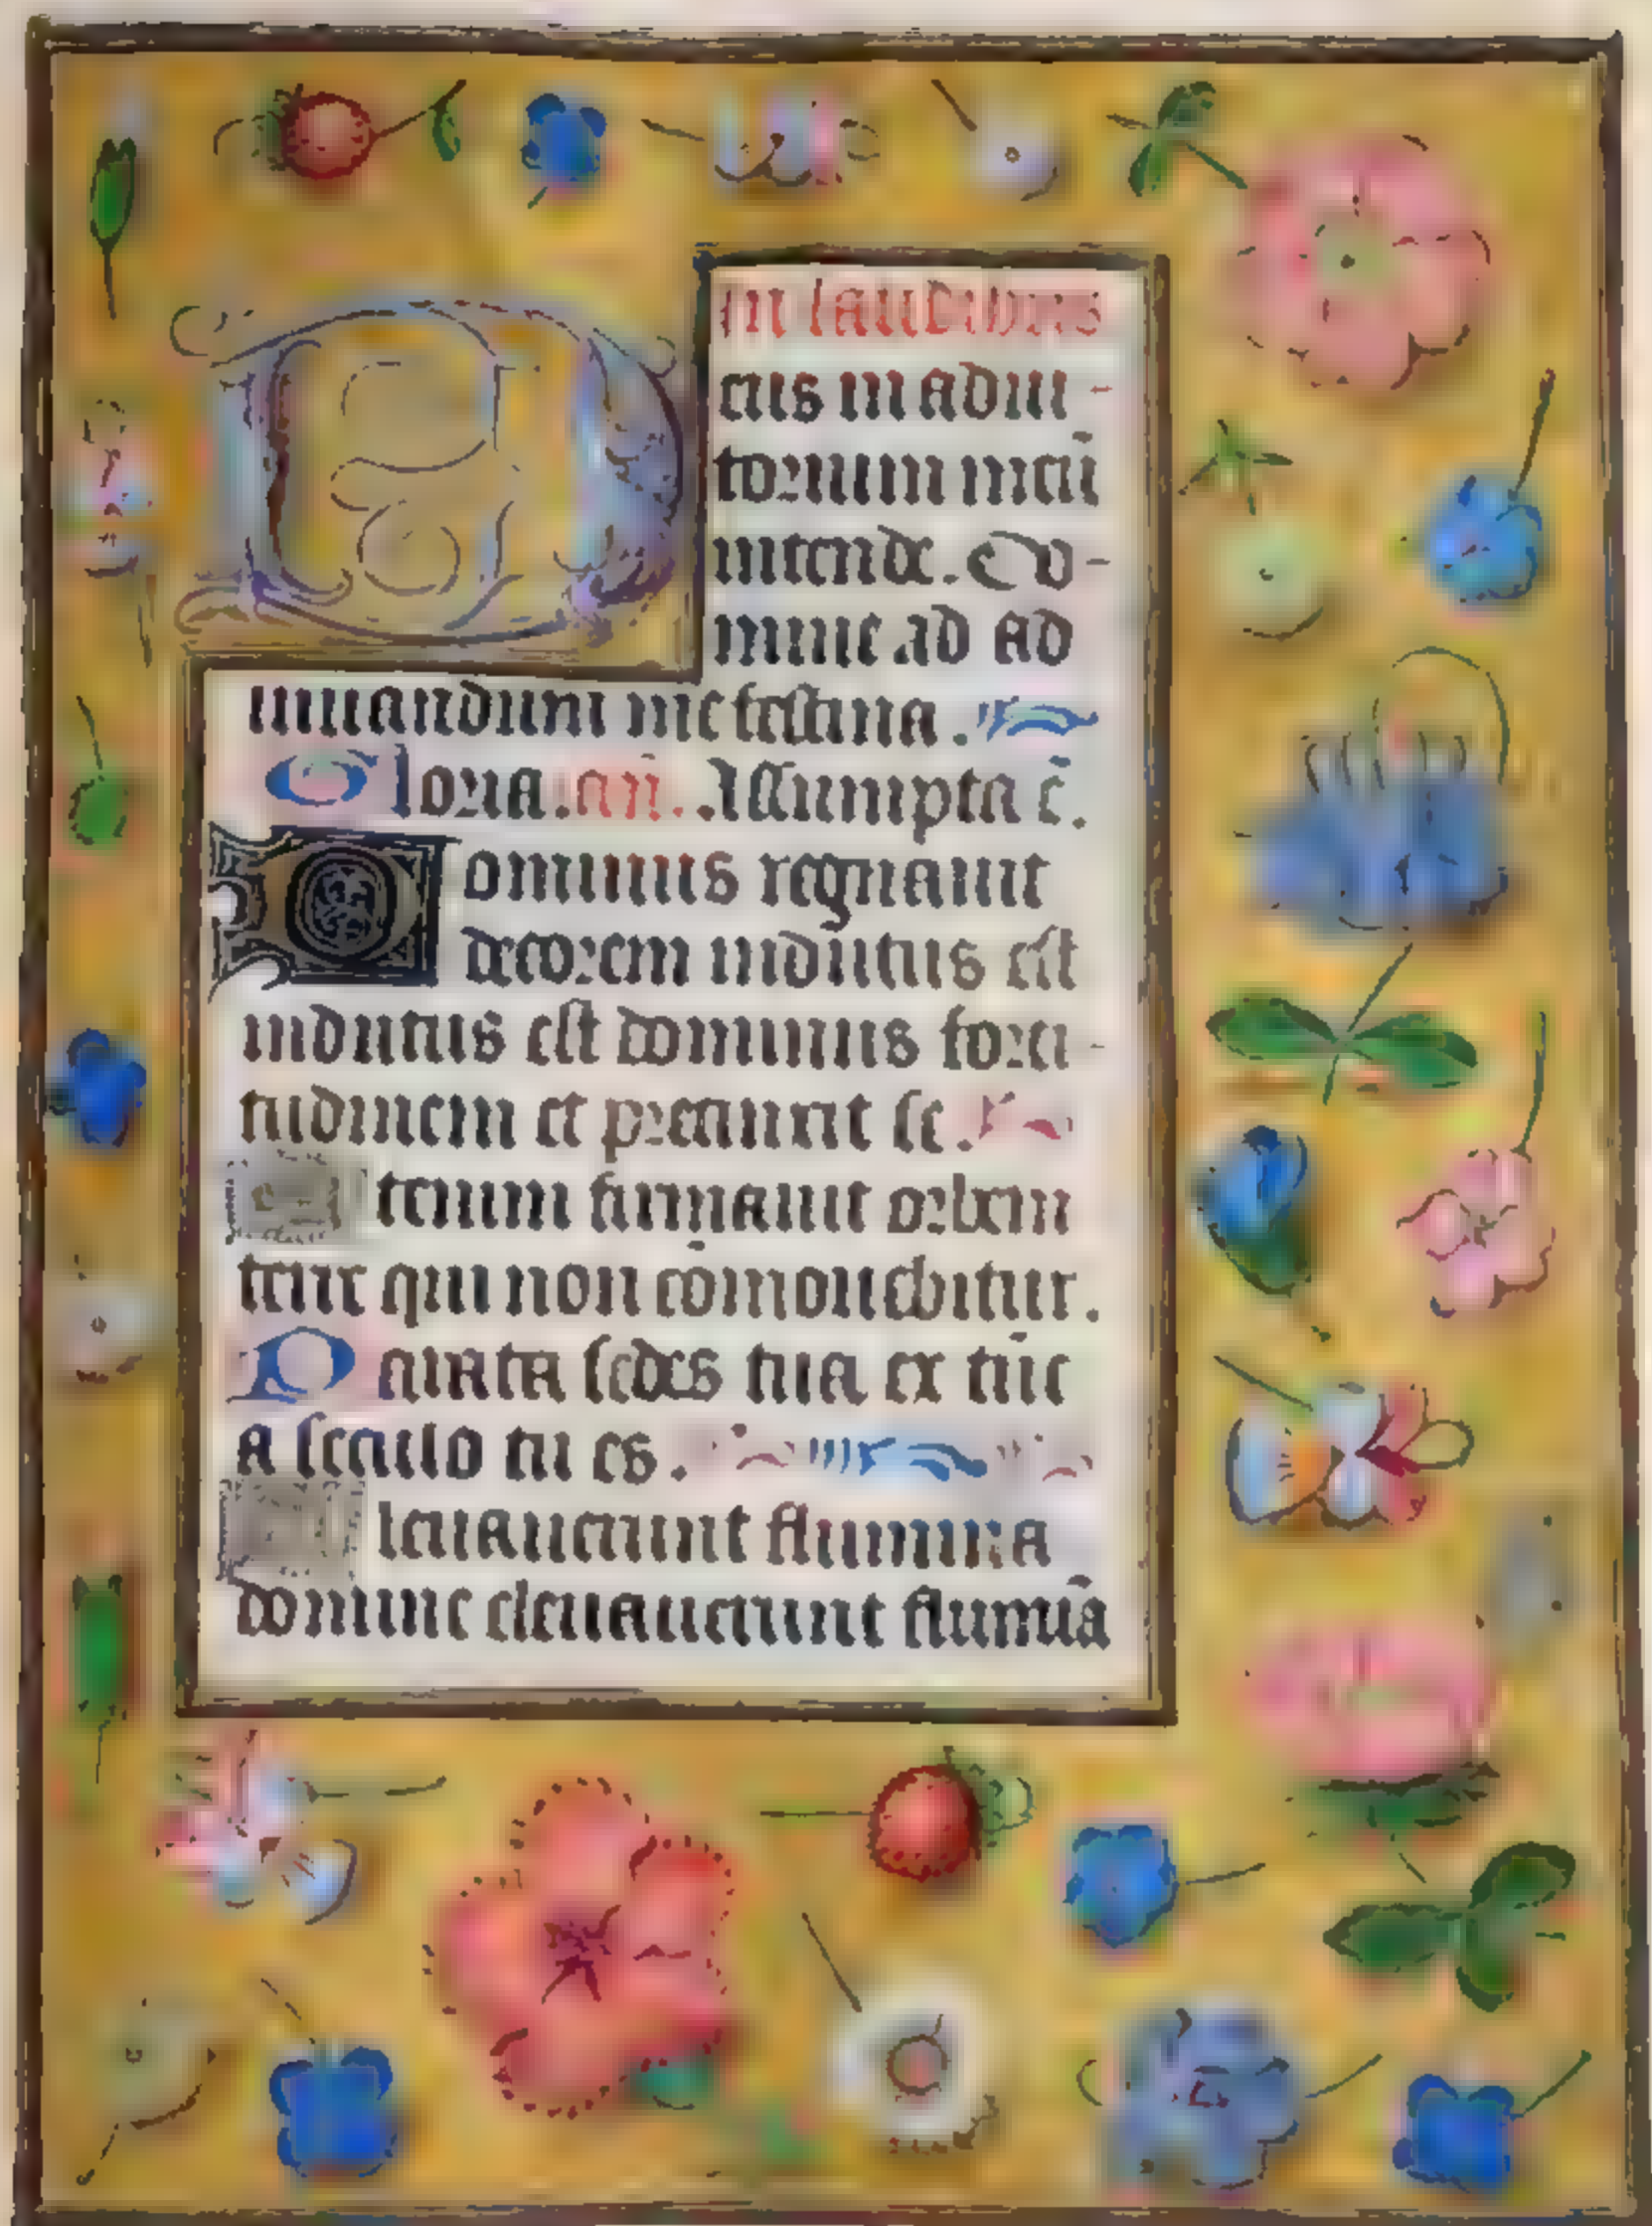 In laudibus
Deus in adiu-
torium meū
intende. Do-
mine ad ad
iuuandum me festina.
Gloria. añ. Assumpta ē.
Dominus regnauit
decorem indutus est
indutus est dominus forti-
tudinem et precinxit se.
Etenim firmauit orbem
terre qui non cōmouebitur.
Parata sedes tua ex tūc
a seculo tu es.
Eleuauerunt flumina
domine eleuauerunt flumīa